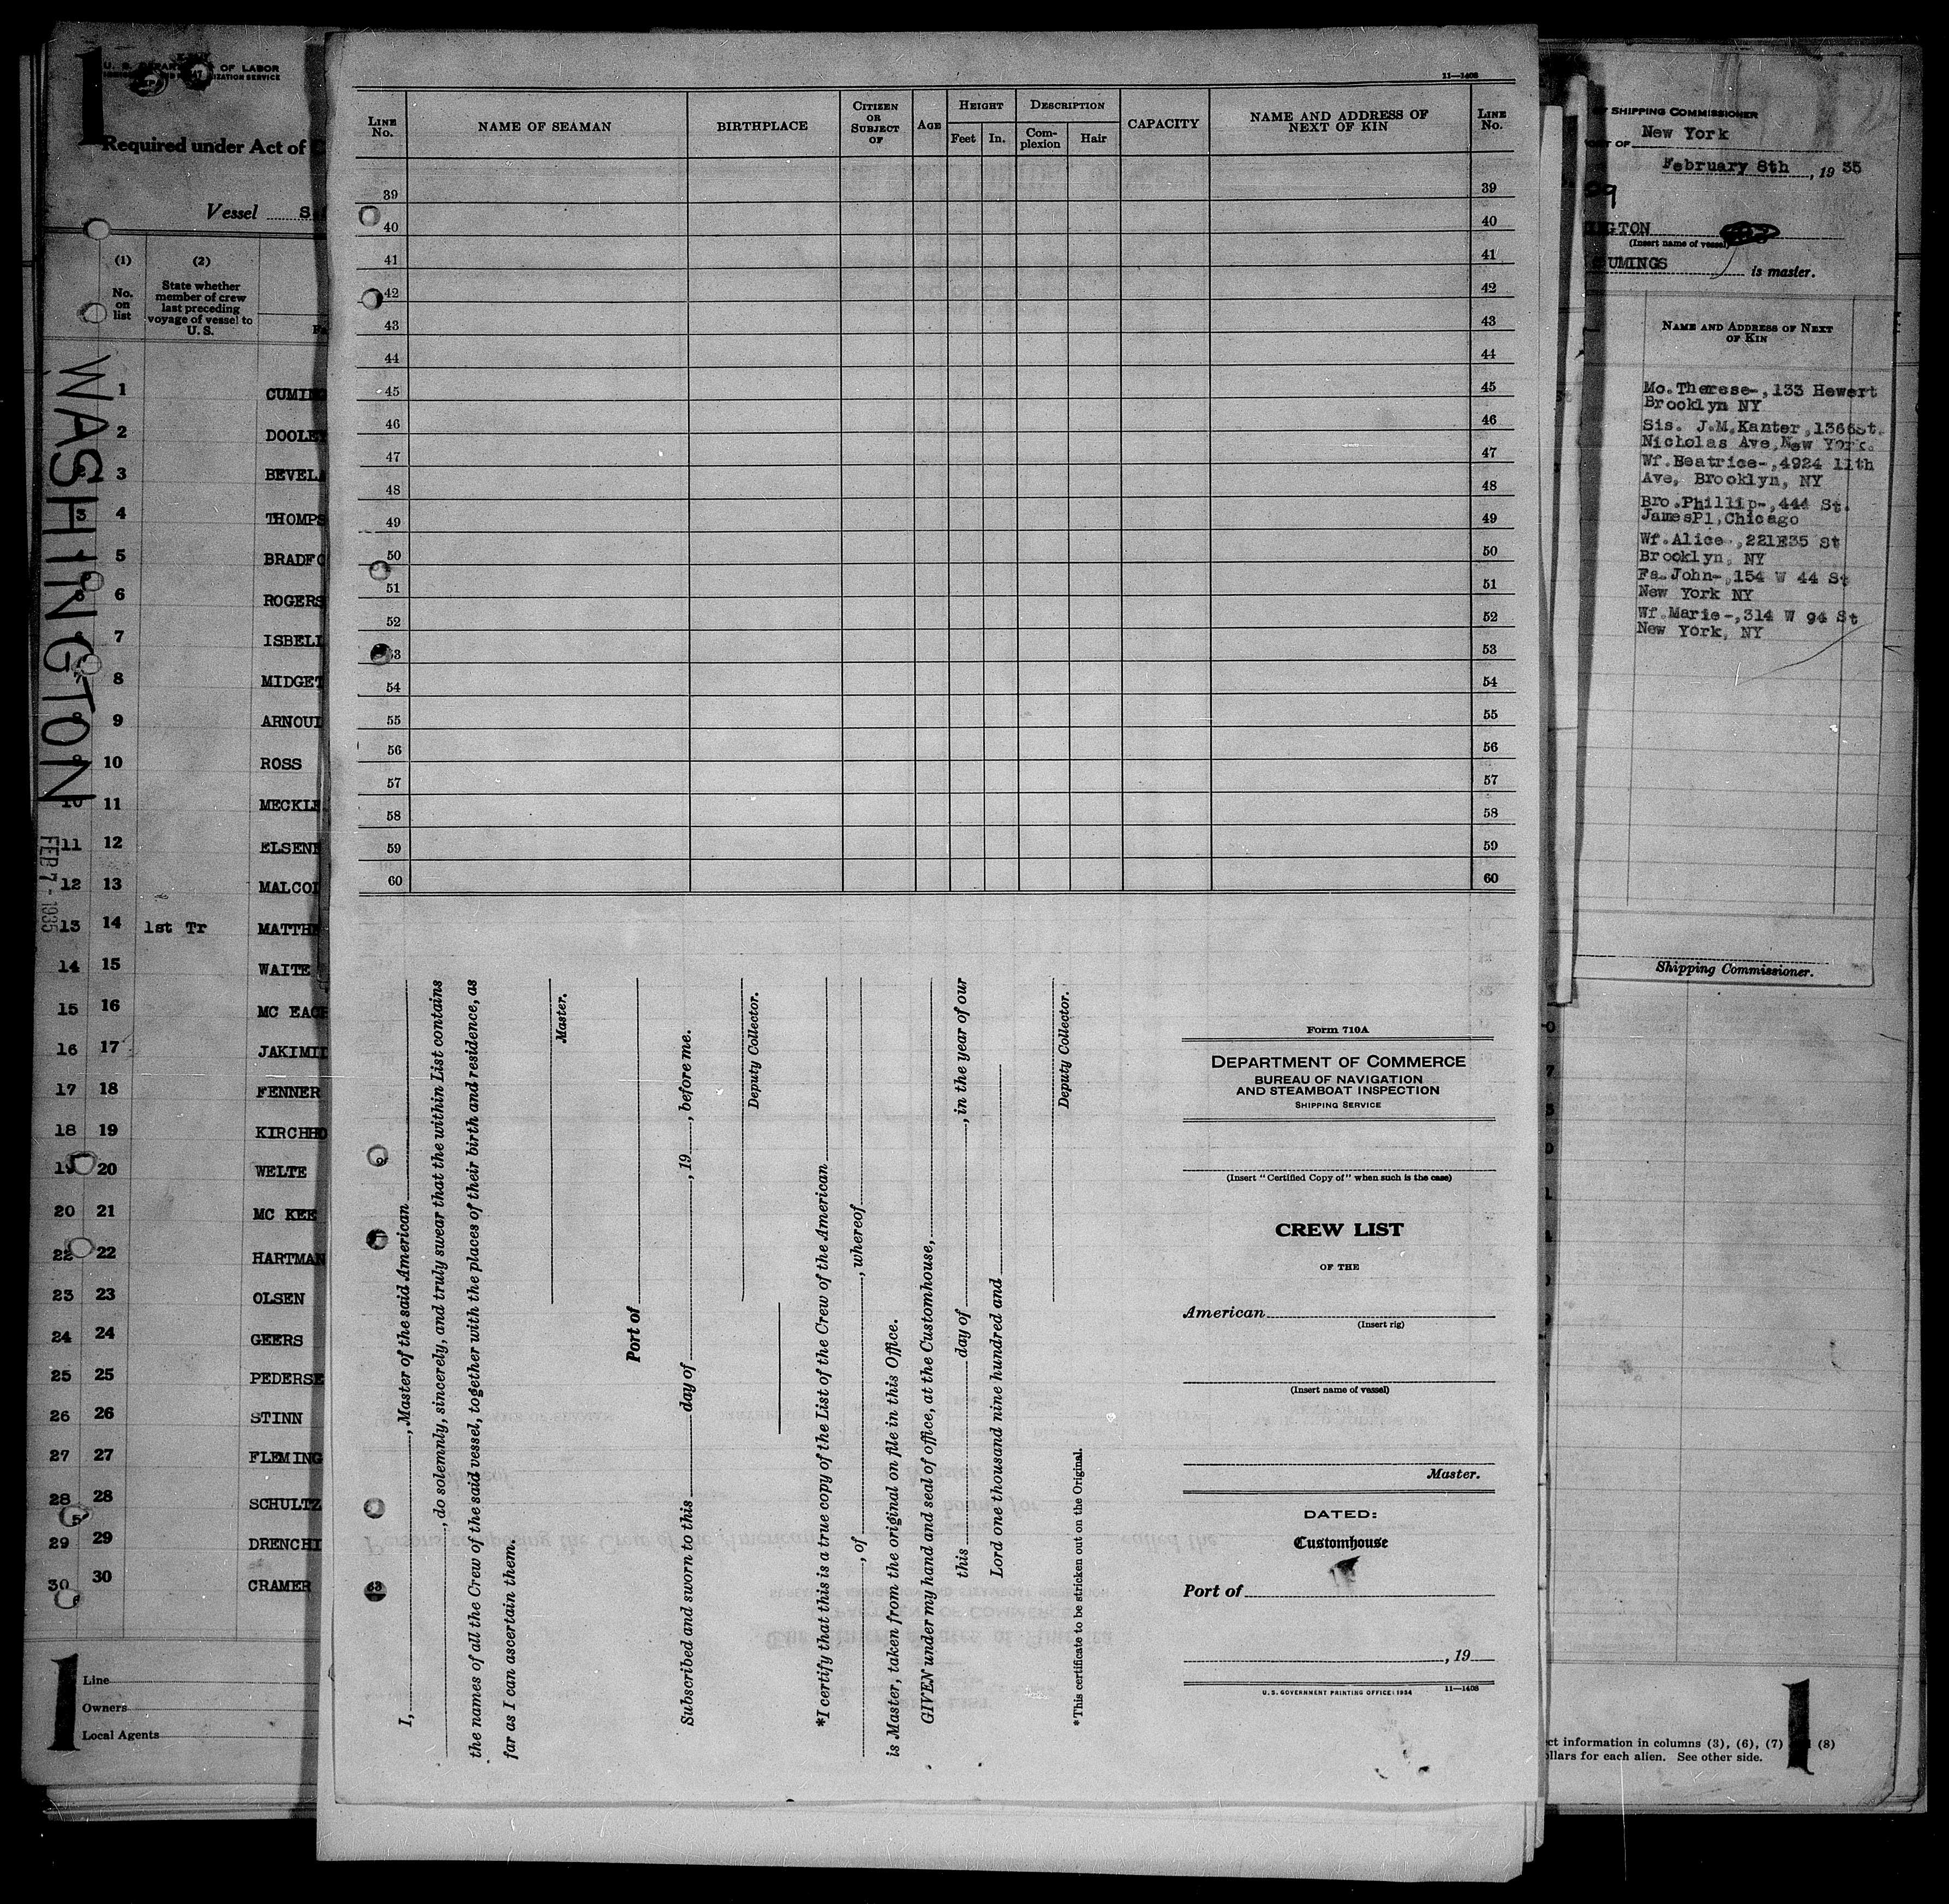 1
U. S. DEPARTMENT OF LABOR
Required under Act of
Vessel S.
(1)
No. on list
(2)
State whether member of crew last preceding voyage of vessel to U. S.
WASHINGTON
FEB 7 - 1935
1 CUMIN
2 DOOLE
3 BEVEL
3 4 THOMPS
5 BRADFO
6 ROGERS
7 ISBELL
8 MIDGET
9 ARNOUL
10 ROSS
10 11 MECKLE
11 12 ELSENE
12 13 MALCOL
13 14 1st Tr MATTHE
14 15 WAITE
15 16 MC EACH
16 17 JAKIMI
17 18 FENNER
18 19 KIRCHHO
19 20 WELTE
20 21 MC KEE
22 22 HARTMAN
23 23 OLSEN
24 24 GEERS
25 25 PEDERSE
26 26 STINN
27 27 FLEMING
28 28 SCHULTZ
29 29 DRENCHI
30 30 CRAMER
1
Line
Owners
Local Agents
11—1408
LINE No.
NAME OF SEAMAN
BIRTHPLACE
CITIZEN OR SUBJECT OF
AGE
HEIGHT
Feet
In.
DESCRIPTION
Complexion
Hair
CAPACITY
NAME AND ADDRESS OF NEXT OF KIN
LINE No.
39 39
40 40
41 41
42 42
43 43
44 44
45 45
46 46
47 47
48 48
49 49
50 50
51 51
52 52
53 53
54 54
55 55
56 56
57 57
58 58
59 59
60 60
I, , Master of the said American
, do solemnly, sincerely, and truly swear that the within List contains
the names of all the Crew of the said vessel, together with the places of their birth and residence, as
far as I can ascertain them.
Master.
Port of
Subscribed and sworn to this day of , 19 , before me.
Deputy Collector.
*I certify that this is a true copy of the List of the Crew of the American
, of , whereof
is Master, taken from the original on file in this Office.
GIVEN under my hand and seal of office, at the Customhouse,
this day of , in the year of our
Lord one thousand nine hundred and
Deputy Collector.
*This certificate to be stricken out on the Original.
Form 710A
DEPARTMENT OF COMMERCE
BUREAU OF NAVIGATION
AND STEAMBOAT INSPECTION
SHIPPING SERVICE
(Insert "Certified Copy of" when such is the case)
CREW LIST
OF THE
American
(Insert rig)
(Insert name of vessel)
Master.
DATED:
Customhouse
Port of
, 19
U. S. GOVERNMENT PRINTING OFFICE: 1934 11—1408
SHIPPING COMMISSIONER
PORT OF New York
February 8th, 19 35
INGTON
(Insert name of vessel)
CUMINGS is master.
NAME AND ADDRESS OF NEXT OF KIN
Mo.Therese-,133 Hewert
Brooklyn NY
Sis. J.M.Kanter,1366St.
Nicholas Ave,New York.
Wf.Beatrice-,4924 11th
Ave, Brooklyn, NY
Bro.Phillip-,444 St.
JamesPl,Chicago
Wf.Alice-,221E35 St
Brooklyn, NY
Fa.John-,154 W 44 St
New York NY
Wf.Marie-,314 W 94 St
New York, NY
Shipping Commissioner.
ct information in columns (3), (6), (7) (8)
ollars for each alien. See other side.
1